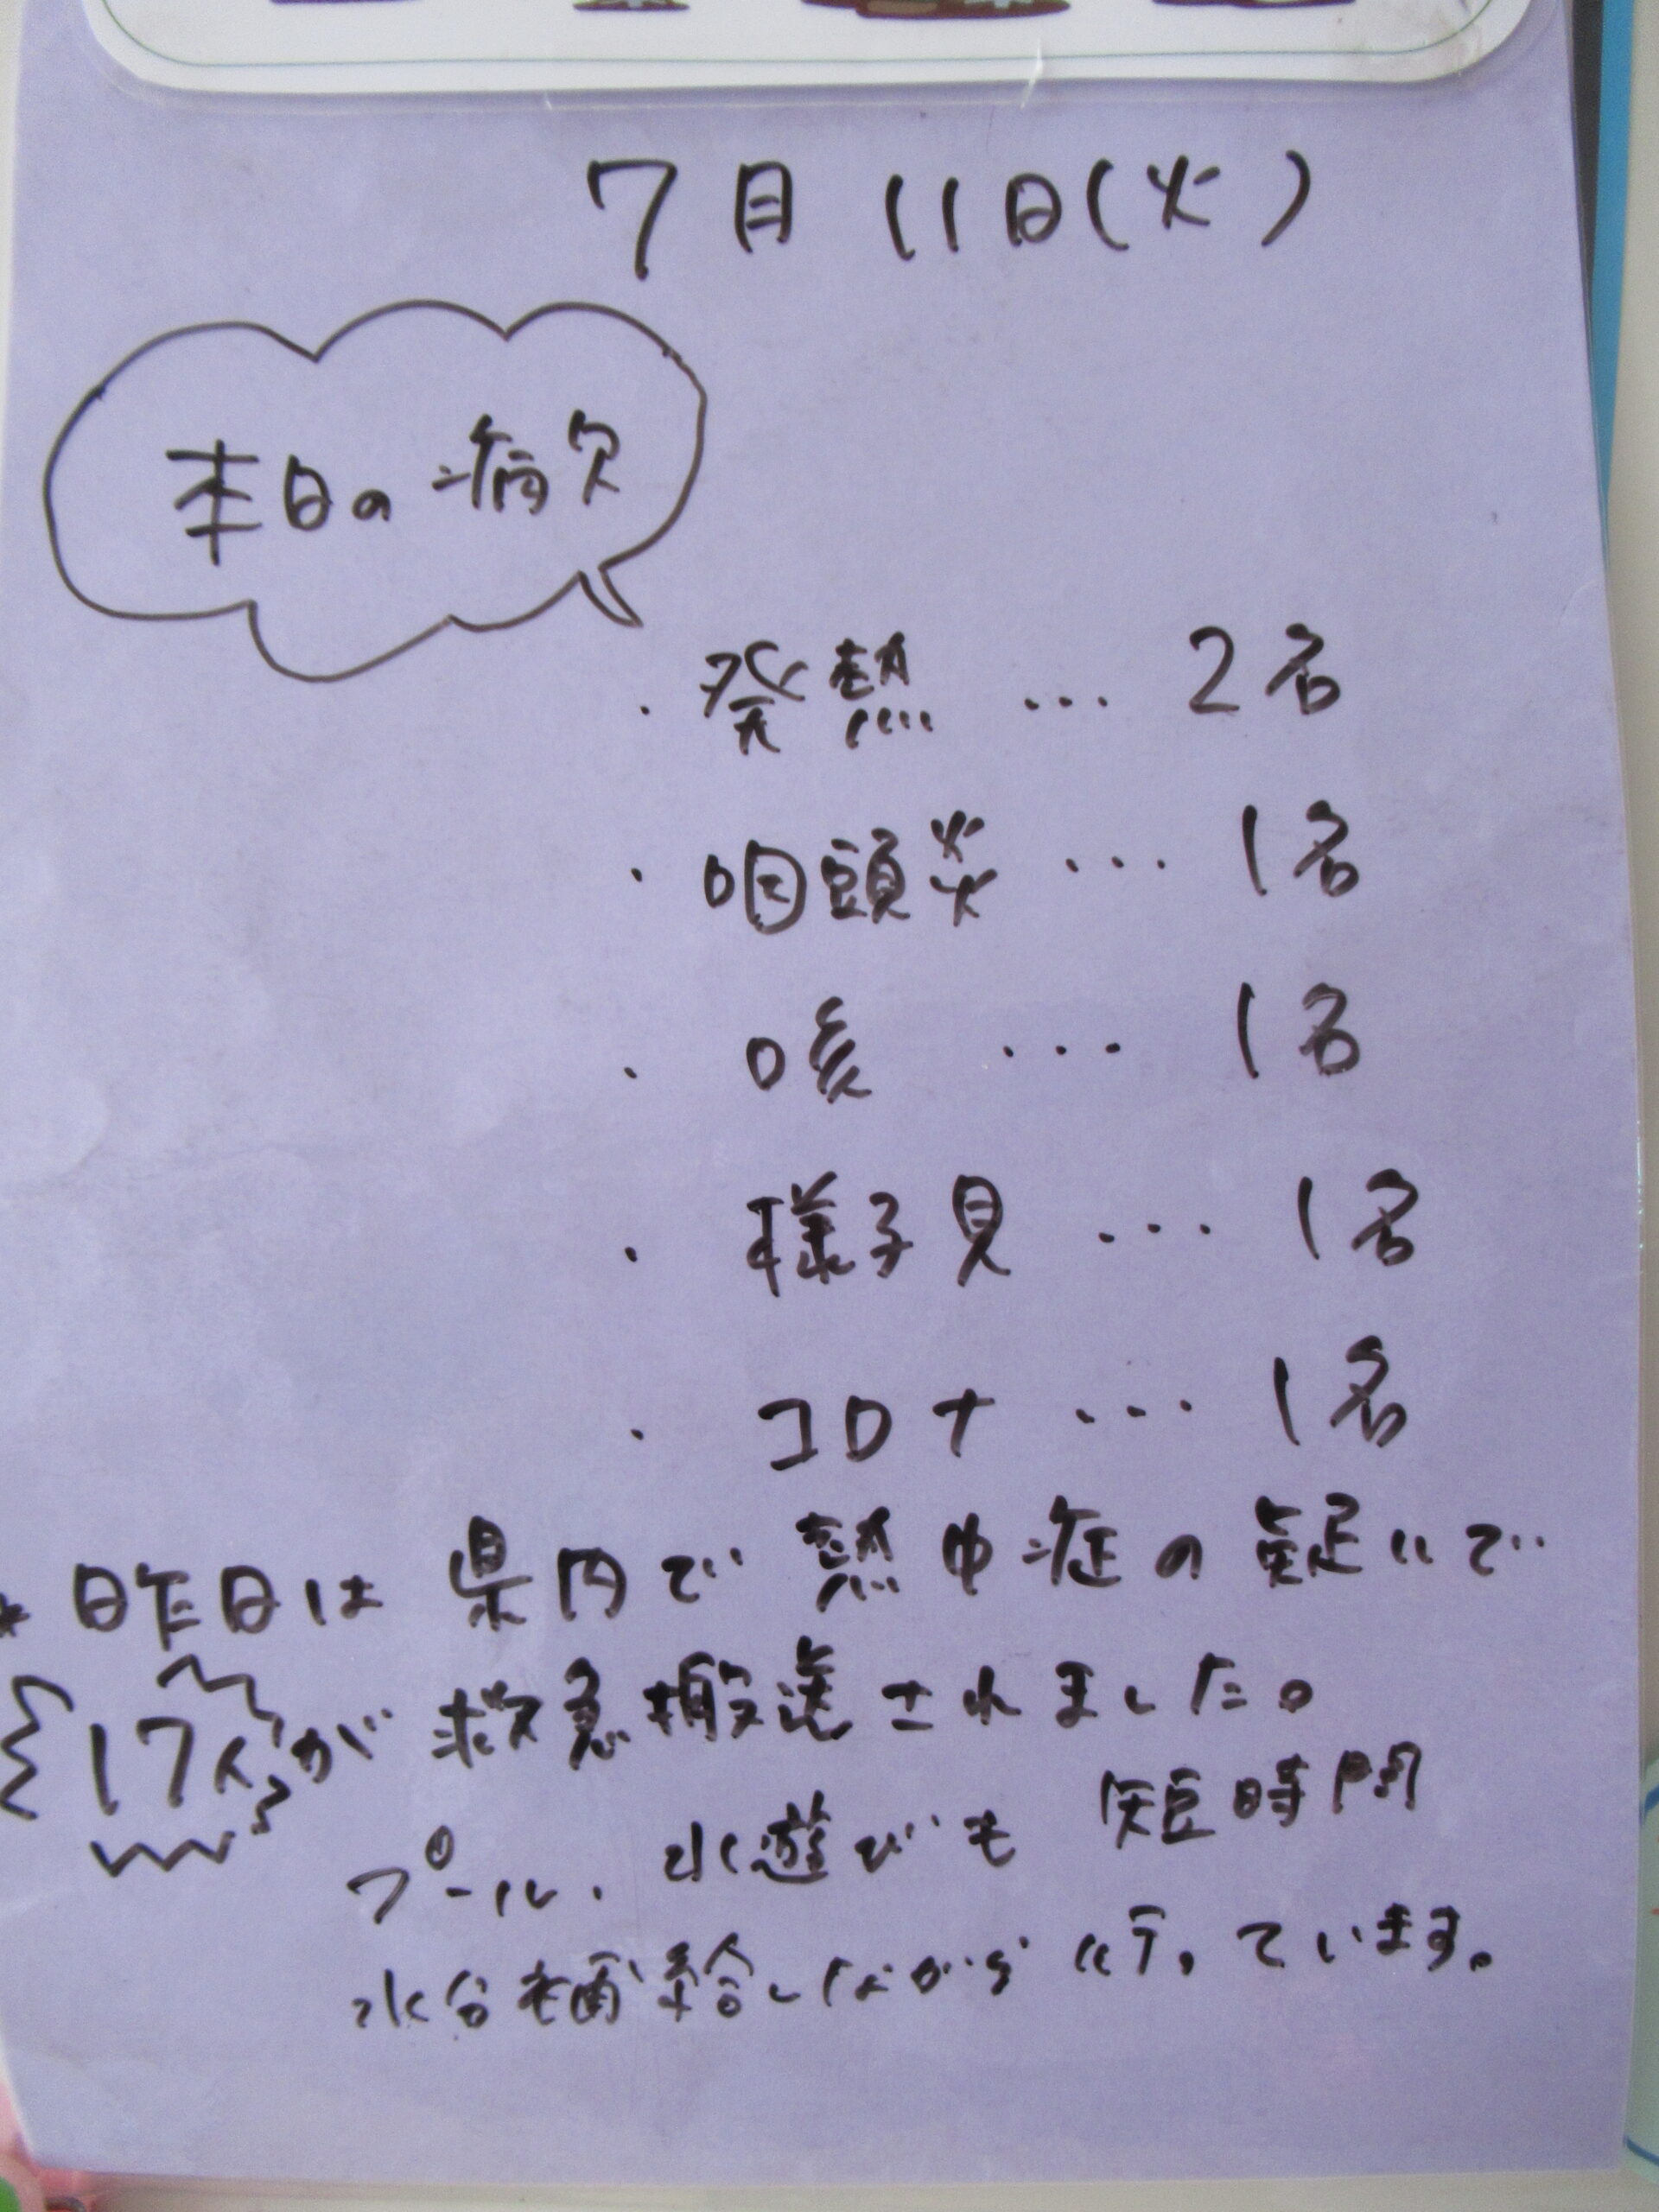 7月11日(火)
本日の病欠
・発熱 … 2名
・咽頭炎 … 1名
・咳 … 1名
・様子見 … 1名
・コロナ … 1名
* 昨日は県内で熱中症の疑いで
17人が救急搬送されました。
プール、水遊びも 短時間
水分補給しながら行っています。